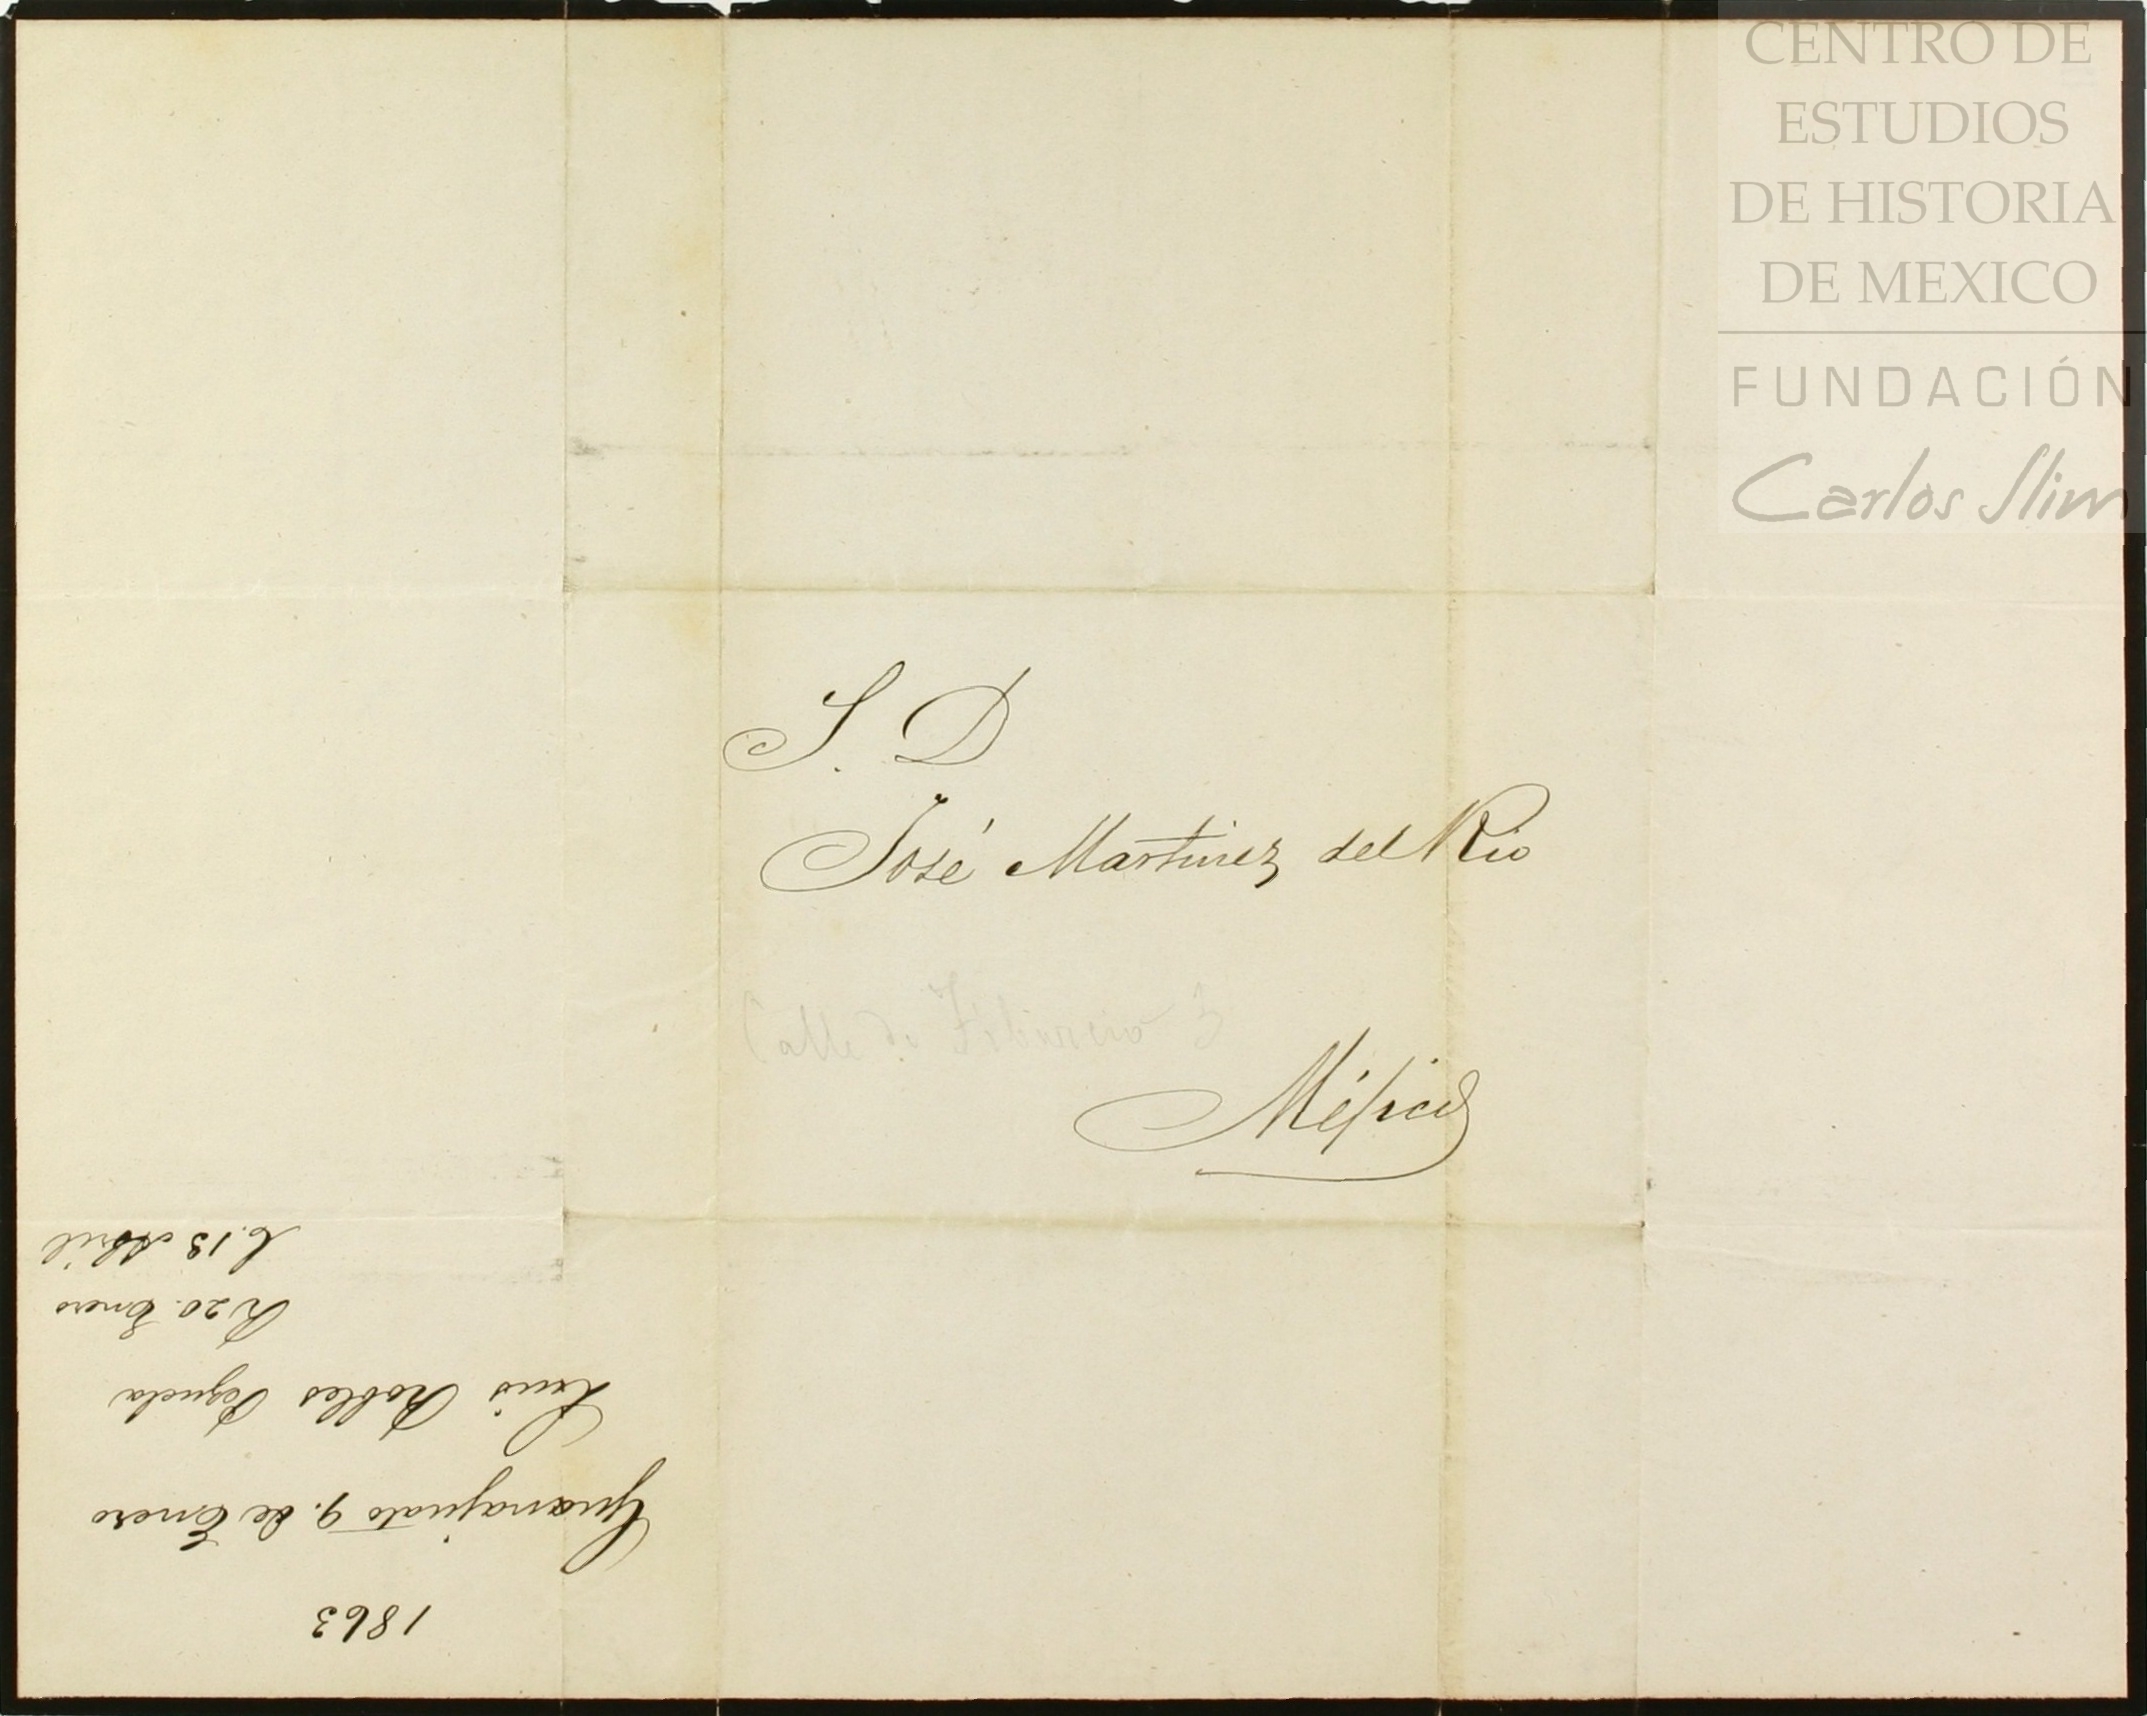 CENTRO DE
ESTUDIOS
DE HISTORIA
DE MEXICO
FUNDACIÓN
Carlos Slim
S. D
José Martinez del Rio
Calle de 3
Méjico
1863
Guanajuato 9. de Enero
Luis Robles Pezuela
R 20. Enero
C. 13 Abril